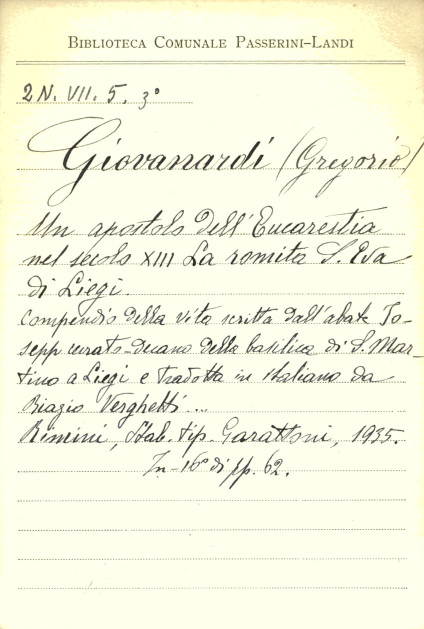 BIBLIOTECA COMUNALE PASSERINI-LANDI
2N. VII. 5. 3°
Giovanardi (Gregorio)
Un apostolo dell'Eucarestia
nel secolo XIII La romita S. Eva
di Liegi.
Compendio della vita scritta dall'abate Jo-
sepp curato-Decano della basilica di S. Mar-
tino a Liegi e tradotta in italiano da
Biagio Verghetti ...
Rimini, Stab. tip. Garattoni, 1935.
In-16° di pp. 62.